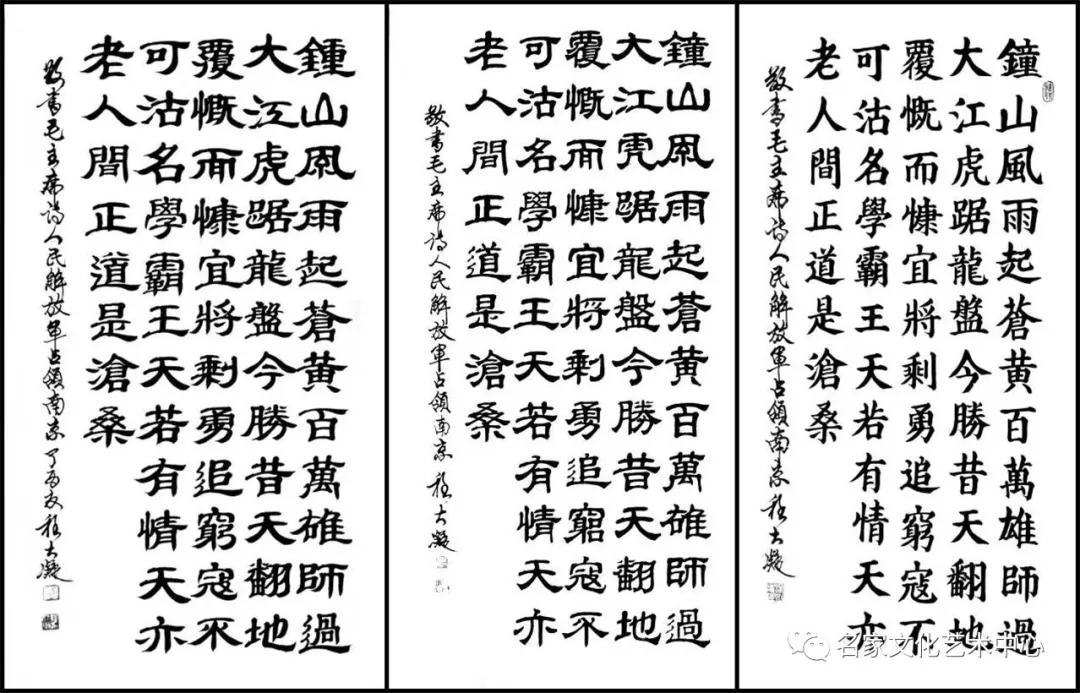 鍾山風雨起蒼黃百萬雄師過
大江虎踞龍盤今勝昔天翻地
覆慨而慷宜將剩勇追窮寇不
可沽名學霸王天若有情天亦
老人間正道是滄桑
敬書毛主席詩人民解放軍占領南京 丁酉夏程大凝
鐘山風雨起蒼黃百萬雄師過
大江虎踞龍盤今勝昔天翻地
覆慨而慷宜將剩勇追窮寇不
可沽名學霸王天若有情天亦
老人間正道是滄桑
敬書毛主席詩人民解放軍占領南京 程大凝
鐘山風雨起蒼黃百萬雄師過
大江虎踞龍盤今勝昔天翻地
覆慨而慷宜將剩勇追窮寇不
可沽名學霸王天若有情天亦
老人間正道是滄桑
敬書毛主席詩人民解放軍占領南京程大凝
名家文化艺术中心